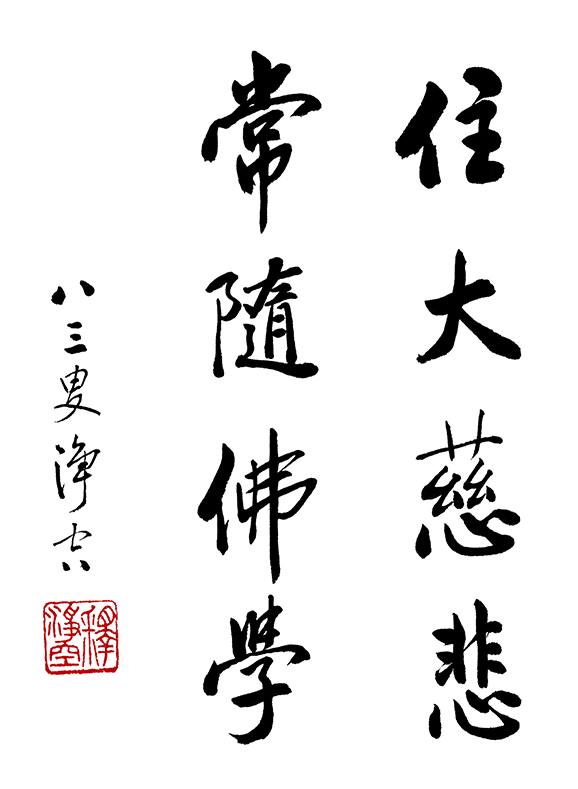 住大慈悲
常隨佛學
八三叟淨空
釋淨空